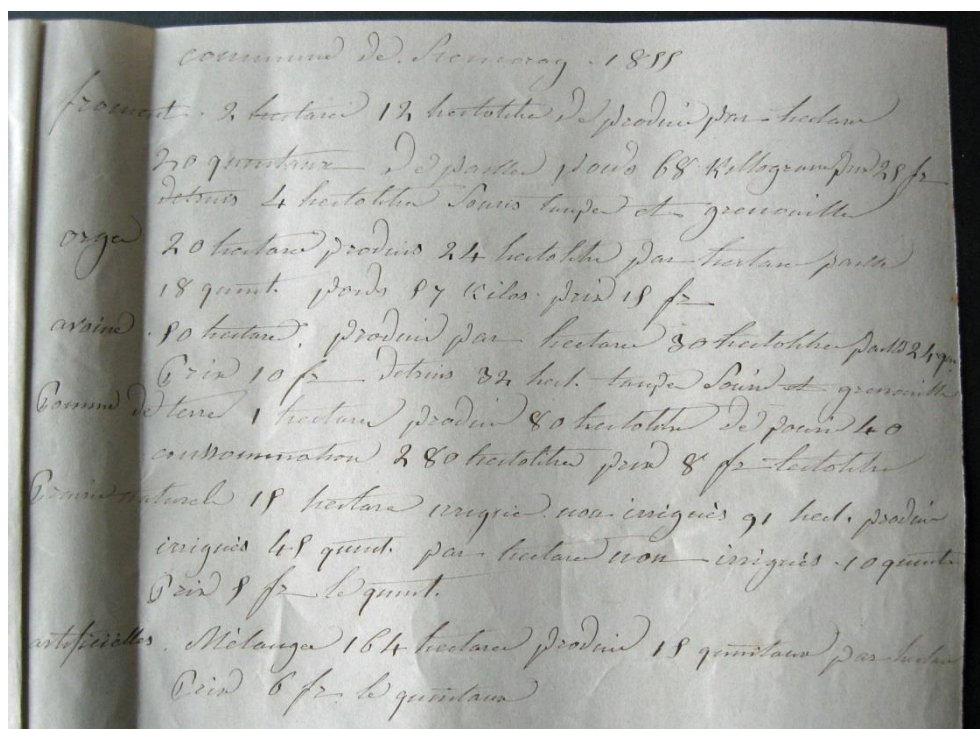 commune de Fromeray. 1855
froment. 2 hectare 12 hectolitre de produit par hectare
20 quintaux de paille poids 68 Kellogram prix 25 fr
detruis 4 hectolitre Souris taupe et grenouille
orge 20 hectare produis 24 hectolitre par hectare paille
18 quint. poids 57 Kilos. prix 15 fr
avoine. 50 hectare. produit par hectare 30 hectolitre paille 24 qu.
Prix 10 fr detruis 32 hect. taupe Souris et grenouille
Pomme de terre 1 hectare produit 80 hectolitre de pourri 40
consommation 280 hectolitre prix 8 fr hectolitre
Prairie naturel 15 hectare irriguée. non irrigués 91 hect. produit
irrigués 45 quint. par hectare non irrigués. 10 quint
Prix 5 fr le quint.
artificielles. Mélange 164 hectare produit 15 quintaux par hectare
Prix 6 fr le quintaux